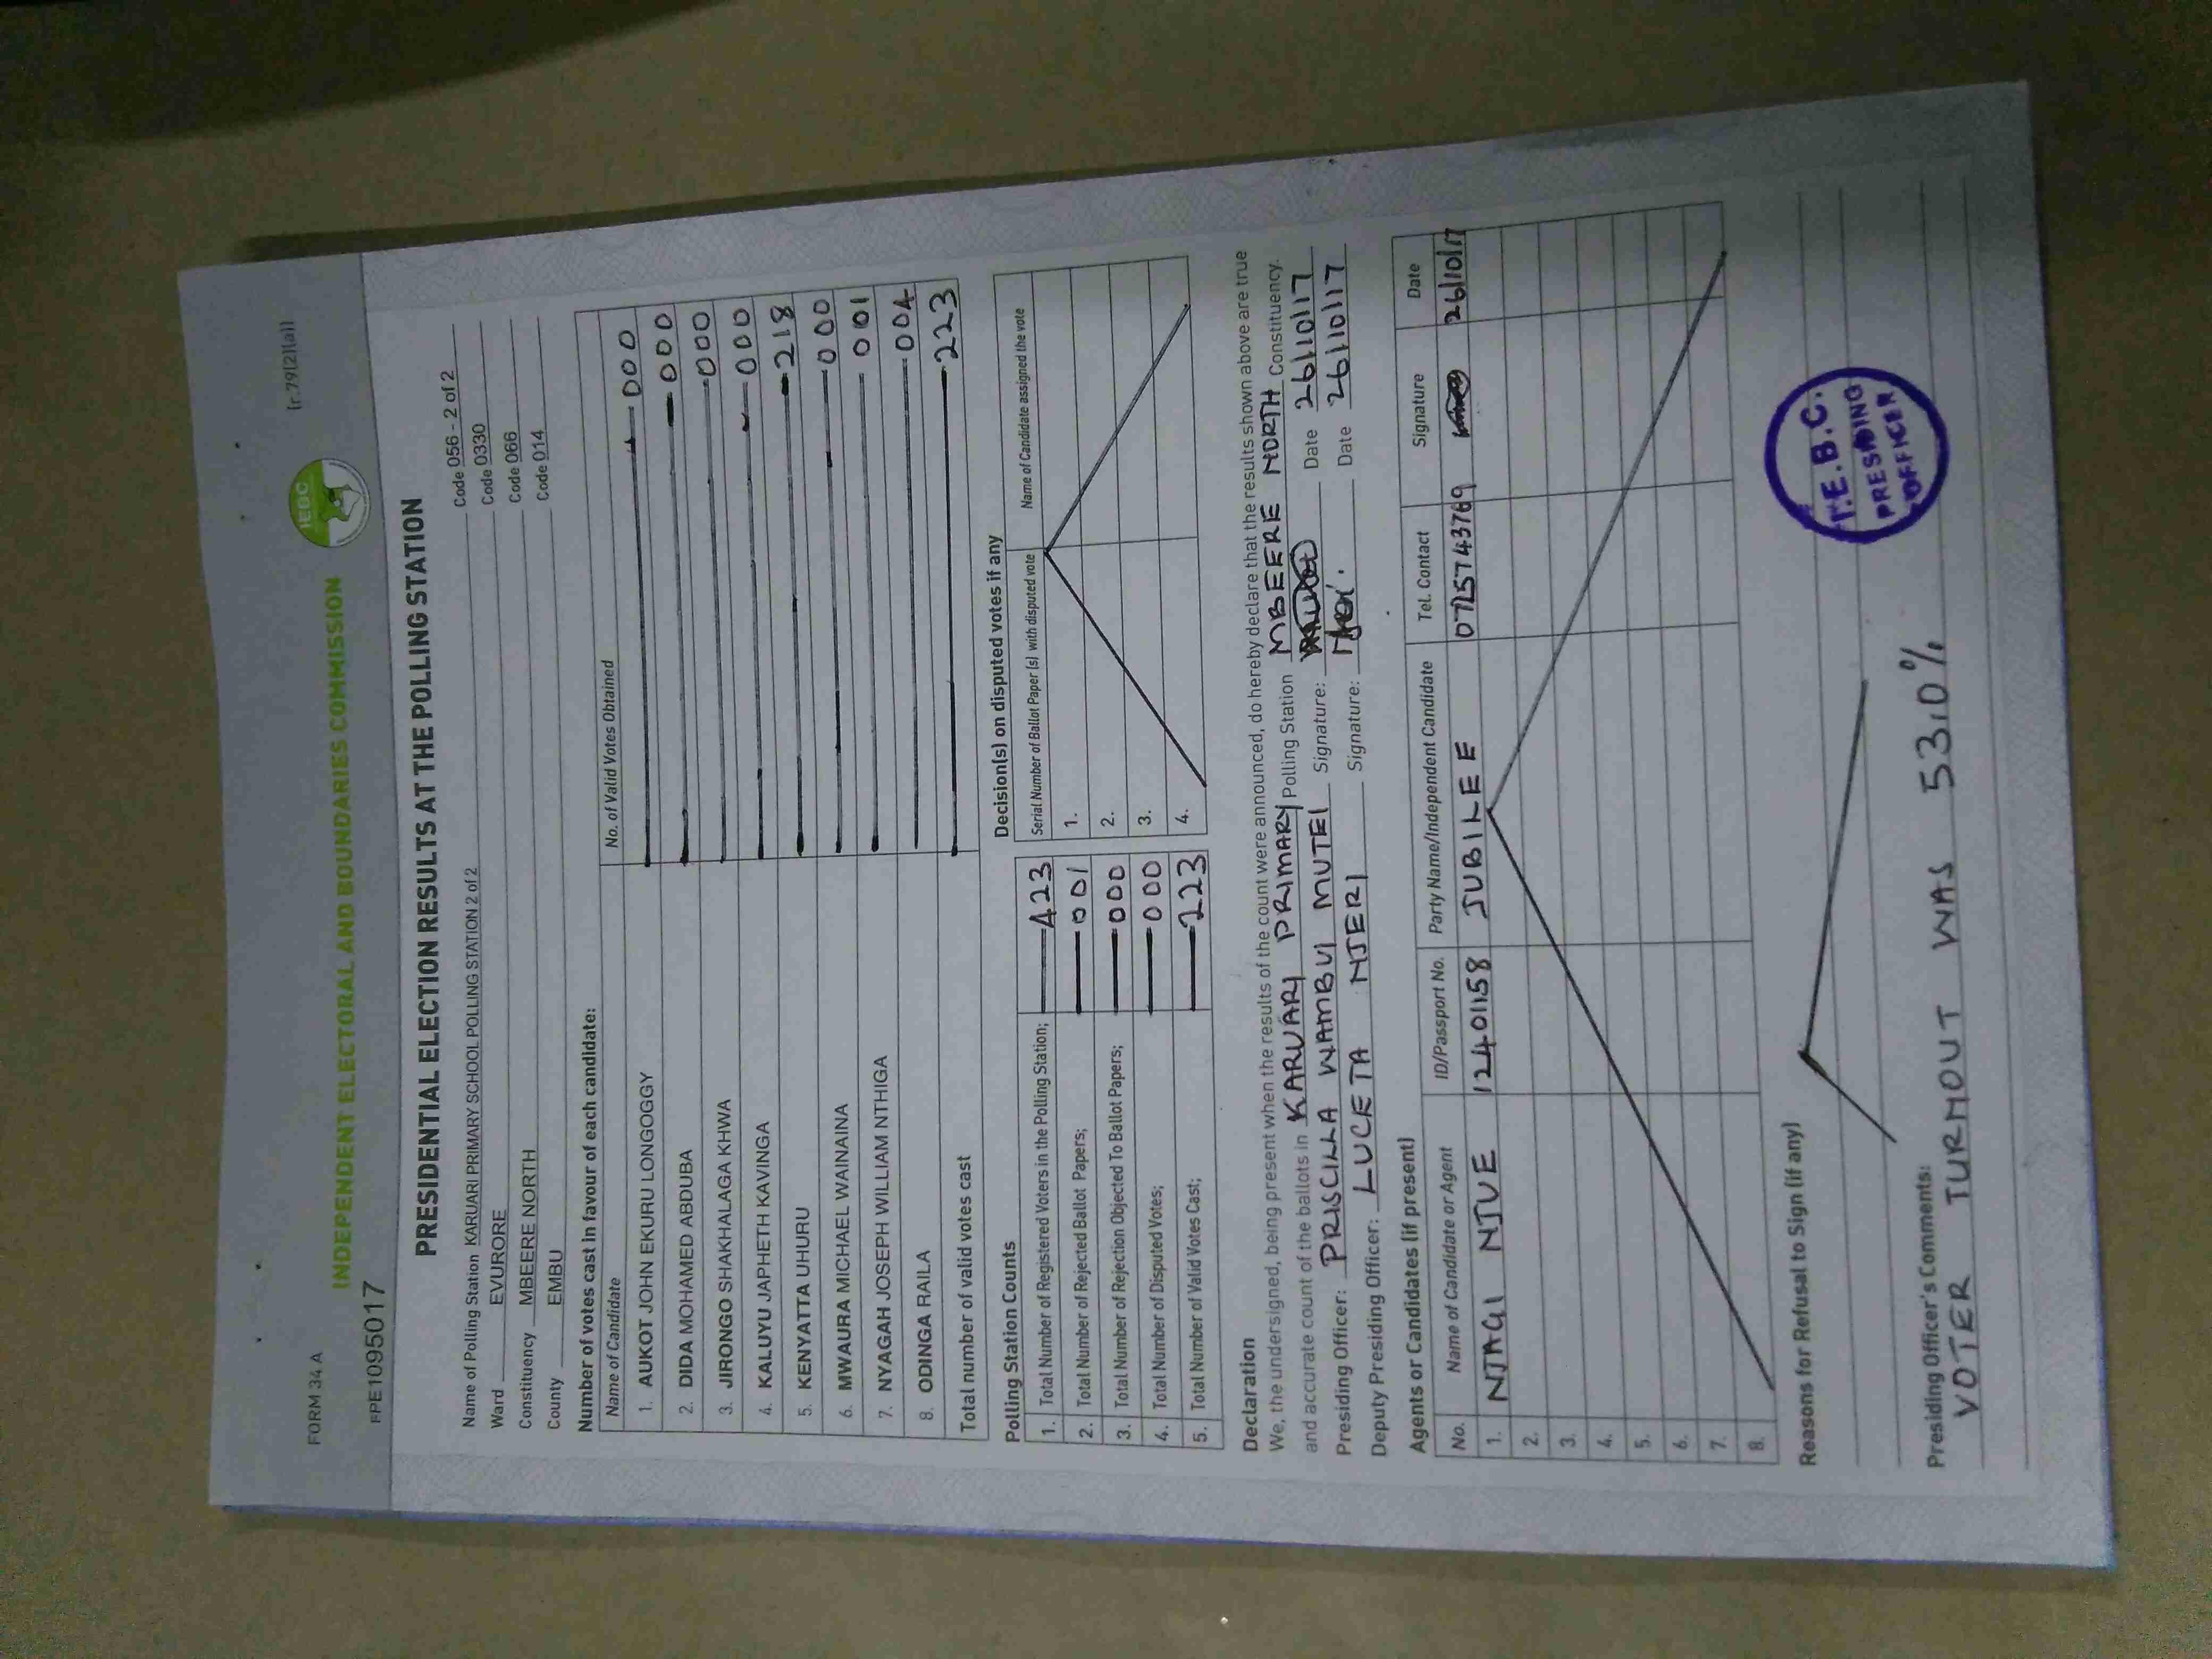 FORM 34 A
[r.79(2)(a)]
IEBC
INDEPENDENT ELECTORAL AND BOUNDARIES COMMISSION
FPE1095017
PRESIDENTIAL ELECTION RESULTS AT THE POLLING STATION
Name of Polling Station KARUARI PRIMARY SCHOOL POLLING STATION 2 of 2 Code 056 - 2 of 2
Ward EVURORE Code 0330
Constituency MBEERE NORTH Code 066
County EMBU Code 014
Number of votes cast in favour of each candidate:
Name of Candidate No. of Valid Votes Obtained
1. AUKOT JOHN EKURU LONGOGGY 000
2. DIDA MOHAMED ABDUBA 000
3. JIRONGO SHAKHALAGA KHWA 000
4. KALUYU JAPHETH KAVINGA 000
5. KENYATTA UHURU 218
6. MWAURA MICHAEL WAINAINA 000
7. NYAGAH JOSEPH WILLIAM NTHIGA 001
8. ODINGA RAILA 004
Total number of valid votes cast 223
Polling Station Counts
1. Total Number of Registered Voters in the Polling Station; 423
2. Total Number of Rejected Ballot Papers; 001
3. Total Number of Rejection Objected To Ballot Papers; 000
4. Total Number of Disputed Votes; 000
5. Total Number of Valid Votes Cast; 223
Decision(s) on disputed votes if any
Serial Number of Ballot Paper (s) with disputed vote Name of Candidate assigned the vote
1.
2.
3.
4.
Declaration
We, the undersigned, being present when the results of the count were announced, do hereby declare that the results shown above are true
and accurate count of the ballots in KARUARI PRIMARY Polling Station MBEERE NORTH Constituency.
Presiding Officer: PRISCILLA WAMBUI MUTEI Signature: Date 26/10/17
Deputy Presiding Officer: LUCETA NJERI Signature: Njeri. Date 26/10/17
Agents or Candidates (if present)
No. Name of Candidate or Agent ID/Passport No. Party Name/Independent Candidate Tel. Contact Signature Date
1. NJAGI NJUE 12401158 JUBILEE 0725743769 26/10/17
2.
3.
4.
5.
6.
7.
8.
Reasons for Refusal to Sign (if any)
I.E.B.C.
PRESIDING
OFFICER
Presiding Officer's Comments:
VOTER TURNOUT WAS 53.0%